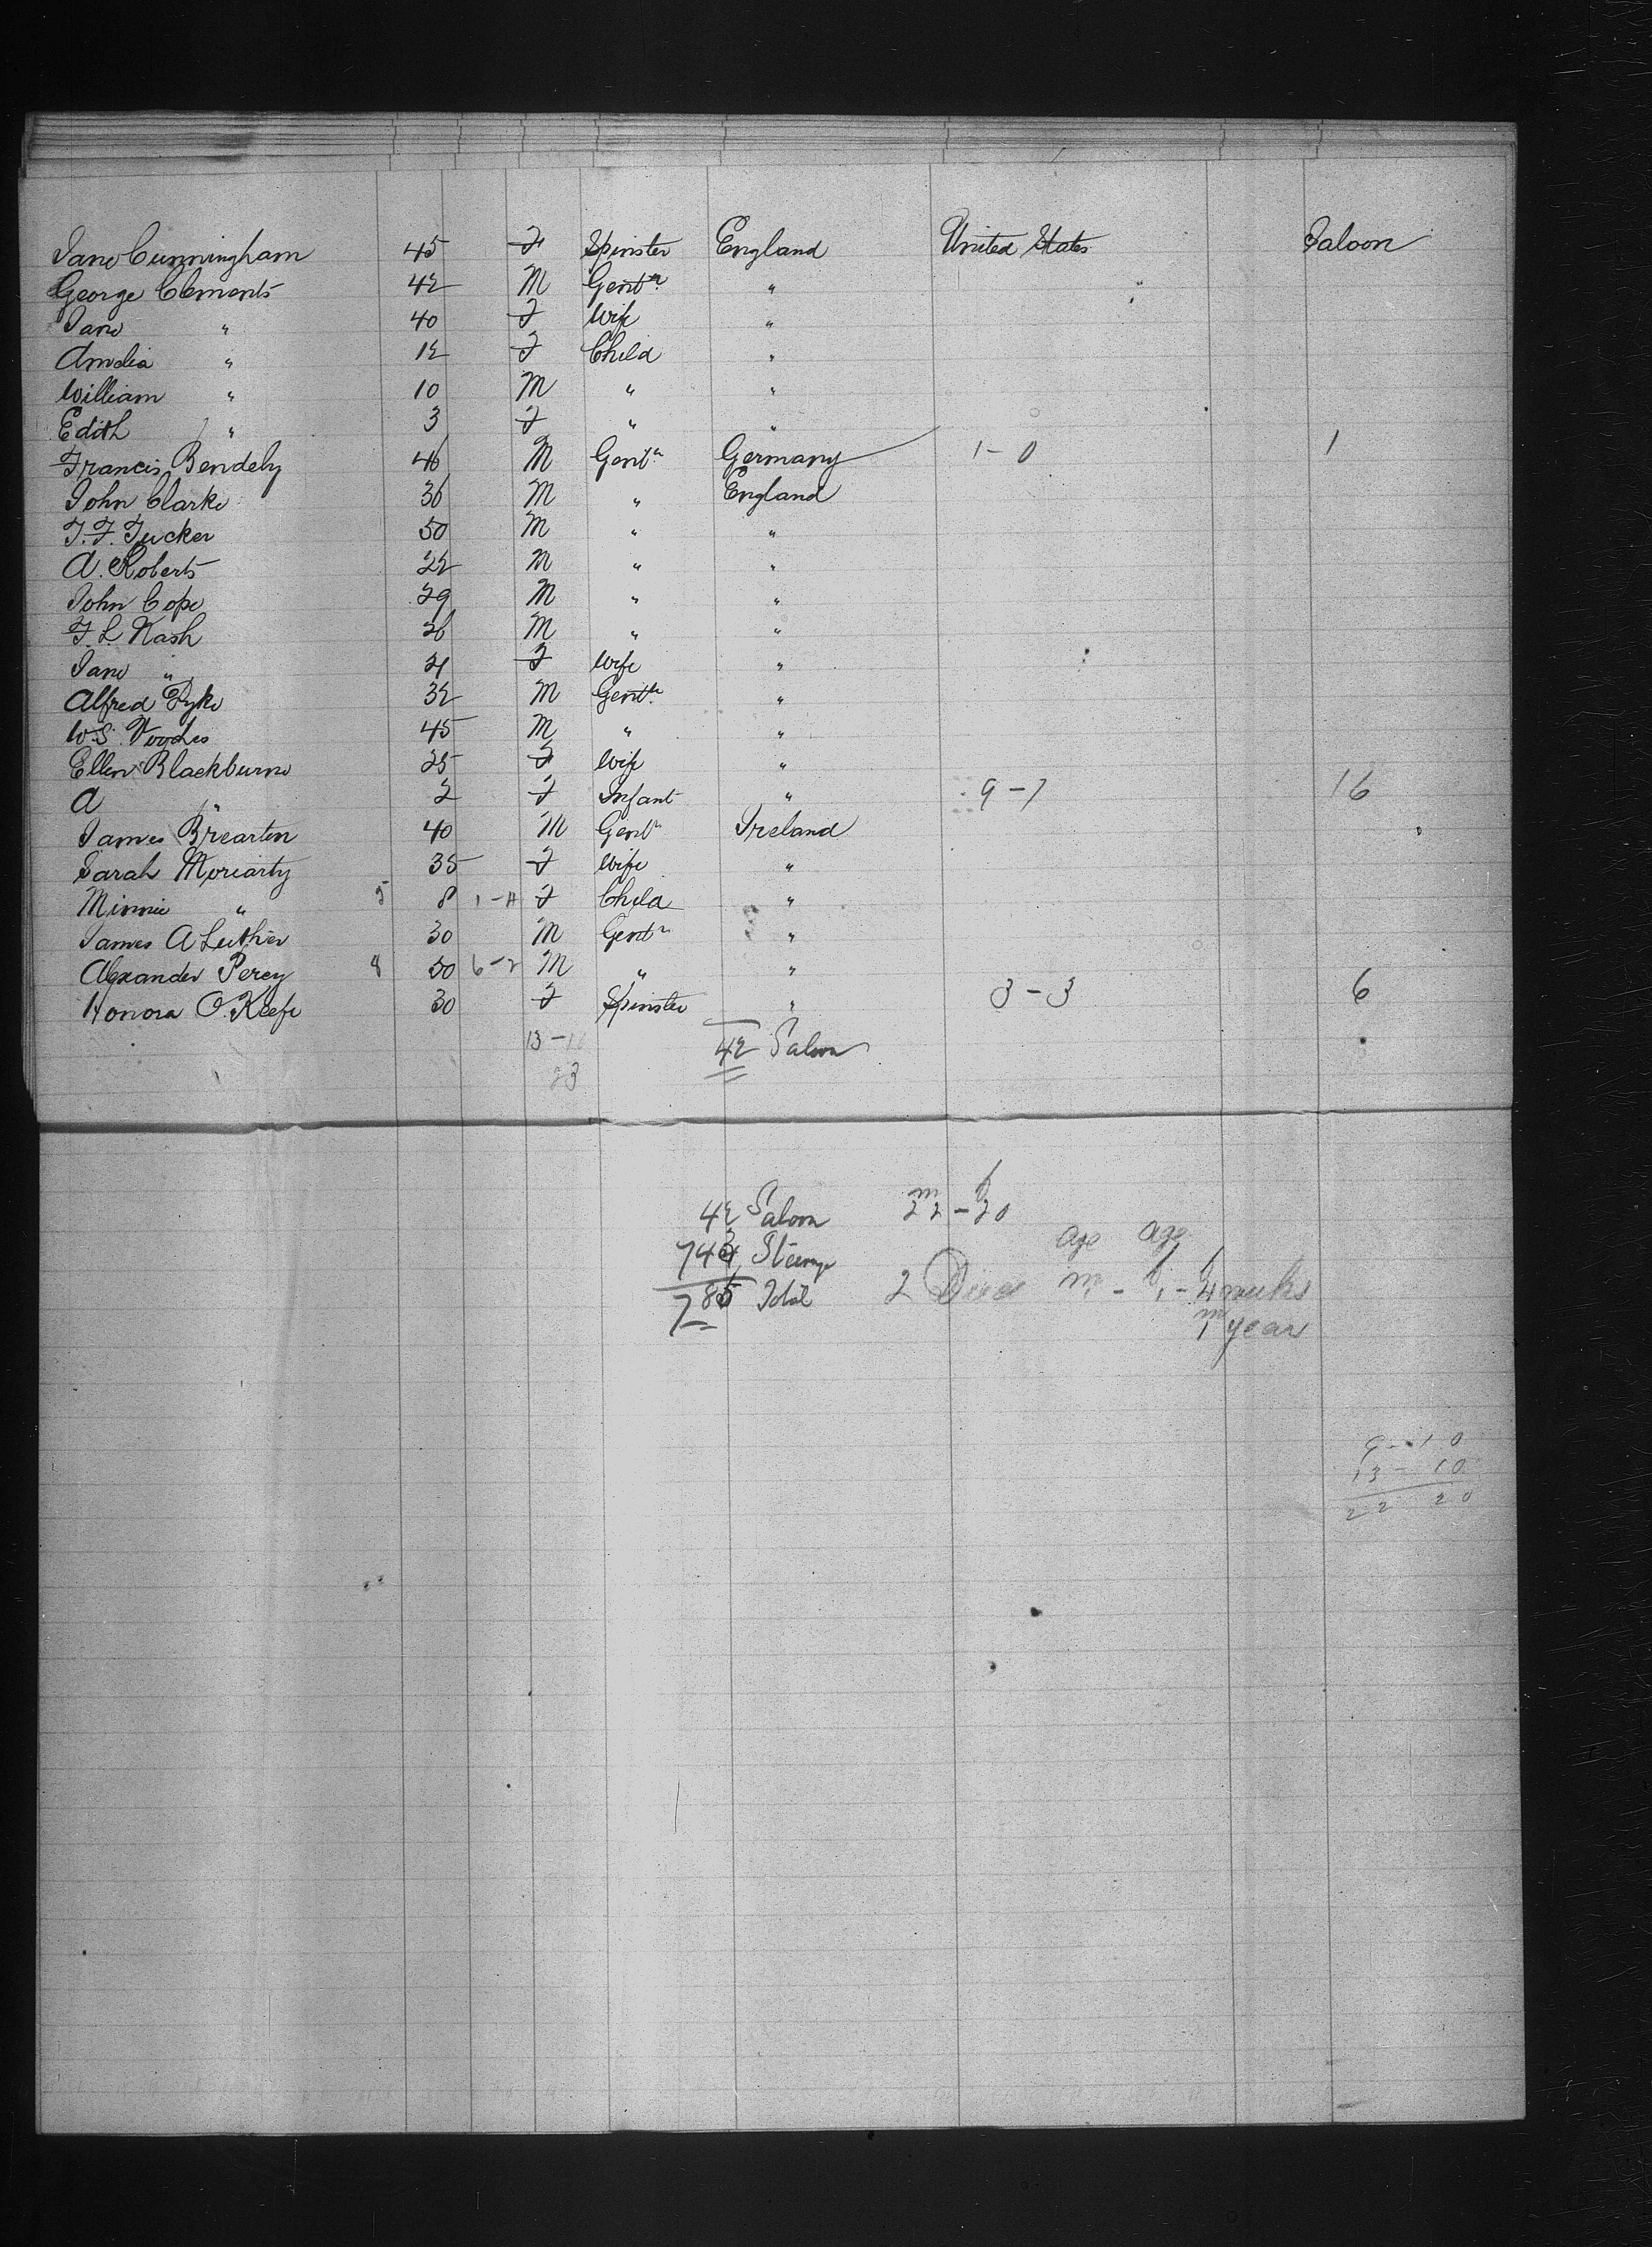 Jane Cunningham 45 F Spinster England United States Saloon
George Clements 42 M Gentn "
Jane " 40 F Wife "
Amelia " 12 F Child "
William " 10 M " "
Edith " 3 F " "
Francis Bendely 46 M Gentn Germany 1-0 1
John Clarke 36 M " England
T. F. Tucker 50 M " "
A. Roberts 22 M " "
John Cope 29 M " "
F. L. Nash 26 M " "
Jane " 21 F Wife "
Alfred Dyke 32 M Gentn "
W. S. 45 M " "
Ellen Blackburne 25 F Wife "
A " 2 F Infant " 9-7 16
James Brearton 40 M Gentn Ireland
Sarah Moriarty 35 F Wife "
Minnie " 5 8 1-4 F Child "
James A Luther 30 M Gentn "
Alexander Percy 8 50 6-2 M " "
Honora O. Keefe 30 F Spinster " 3-3 6
13-10 42 Saloon
23
42 Saloon m 22 - f 20
743 Steerage age age
785 Total 2 Died m 1 - f 1 - f 4 weeks
m 1 year
9-10
13-10
22 20